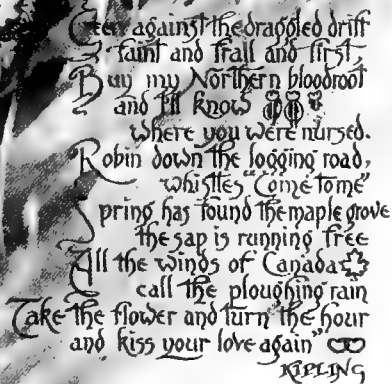 Peer against the draggled drift
faint and frail and first,
Buy my Northern bloodroot
and I'll know
where you were nursed.
Robin down the logging road,
whistles "Come to me"
Spring has found the maple grove
the sap is running free
All the winds of Canada
call the ploughing rain
Take the flower and turn the hour
and kiss your love again"
KIPLING